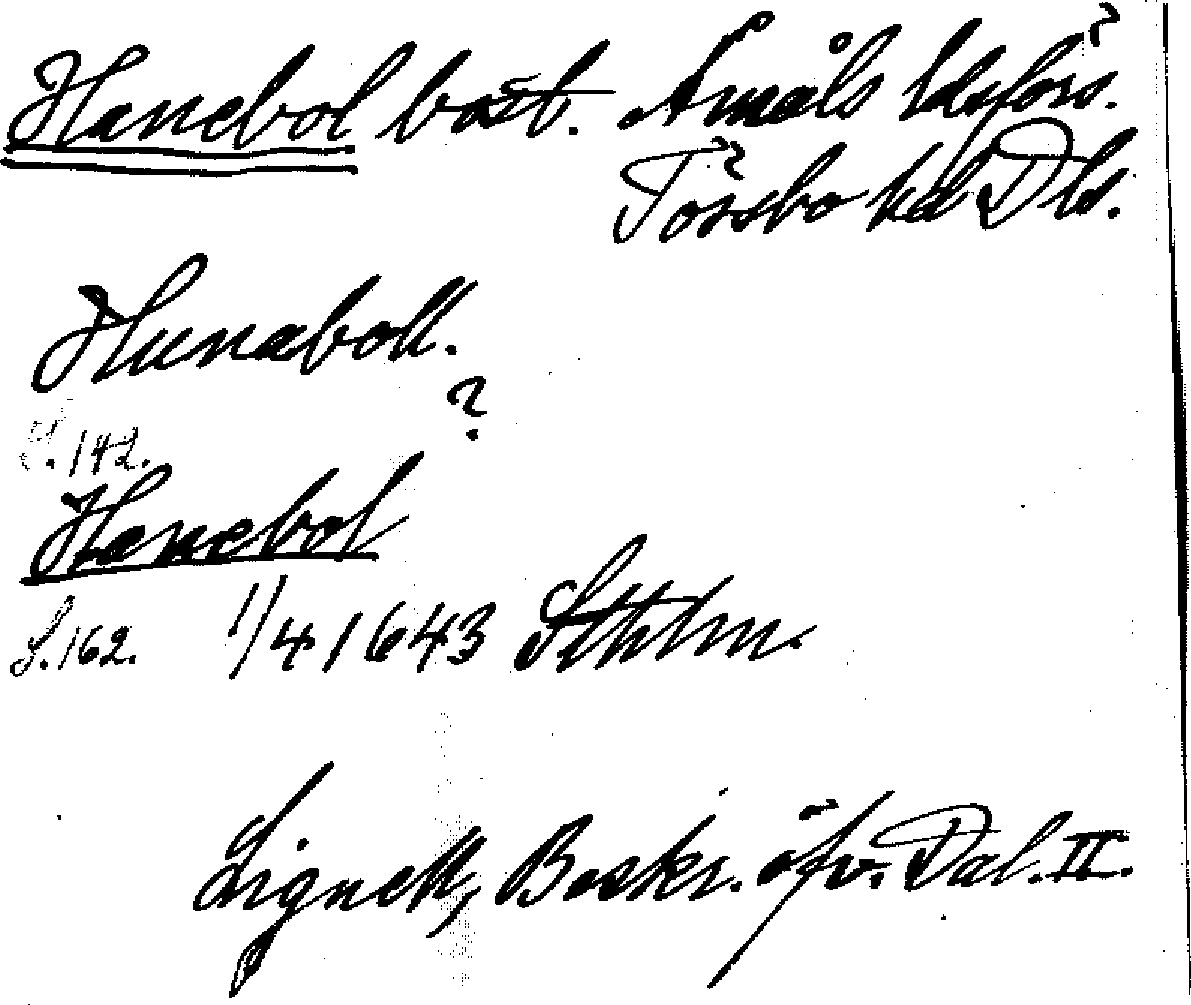 Hanebol bost. Åmåls ldsförs.
Tössbo hd Dls.
Hunaboll.
?
S. 142.
Hanebol
S. 162. 1/4 1643 Sthlm.
Lignell, Beskr. öfv. Dal. II.